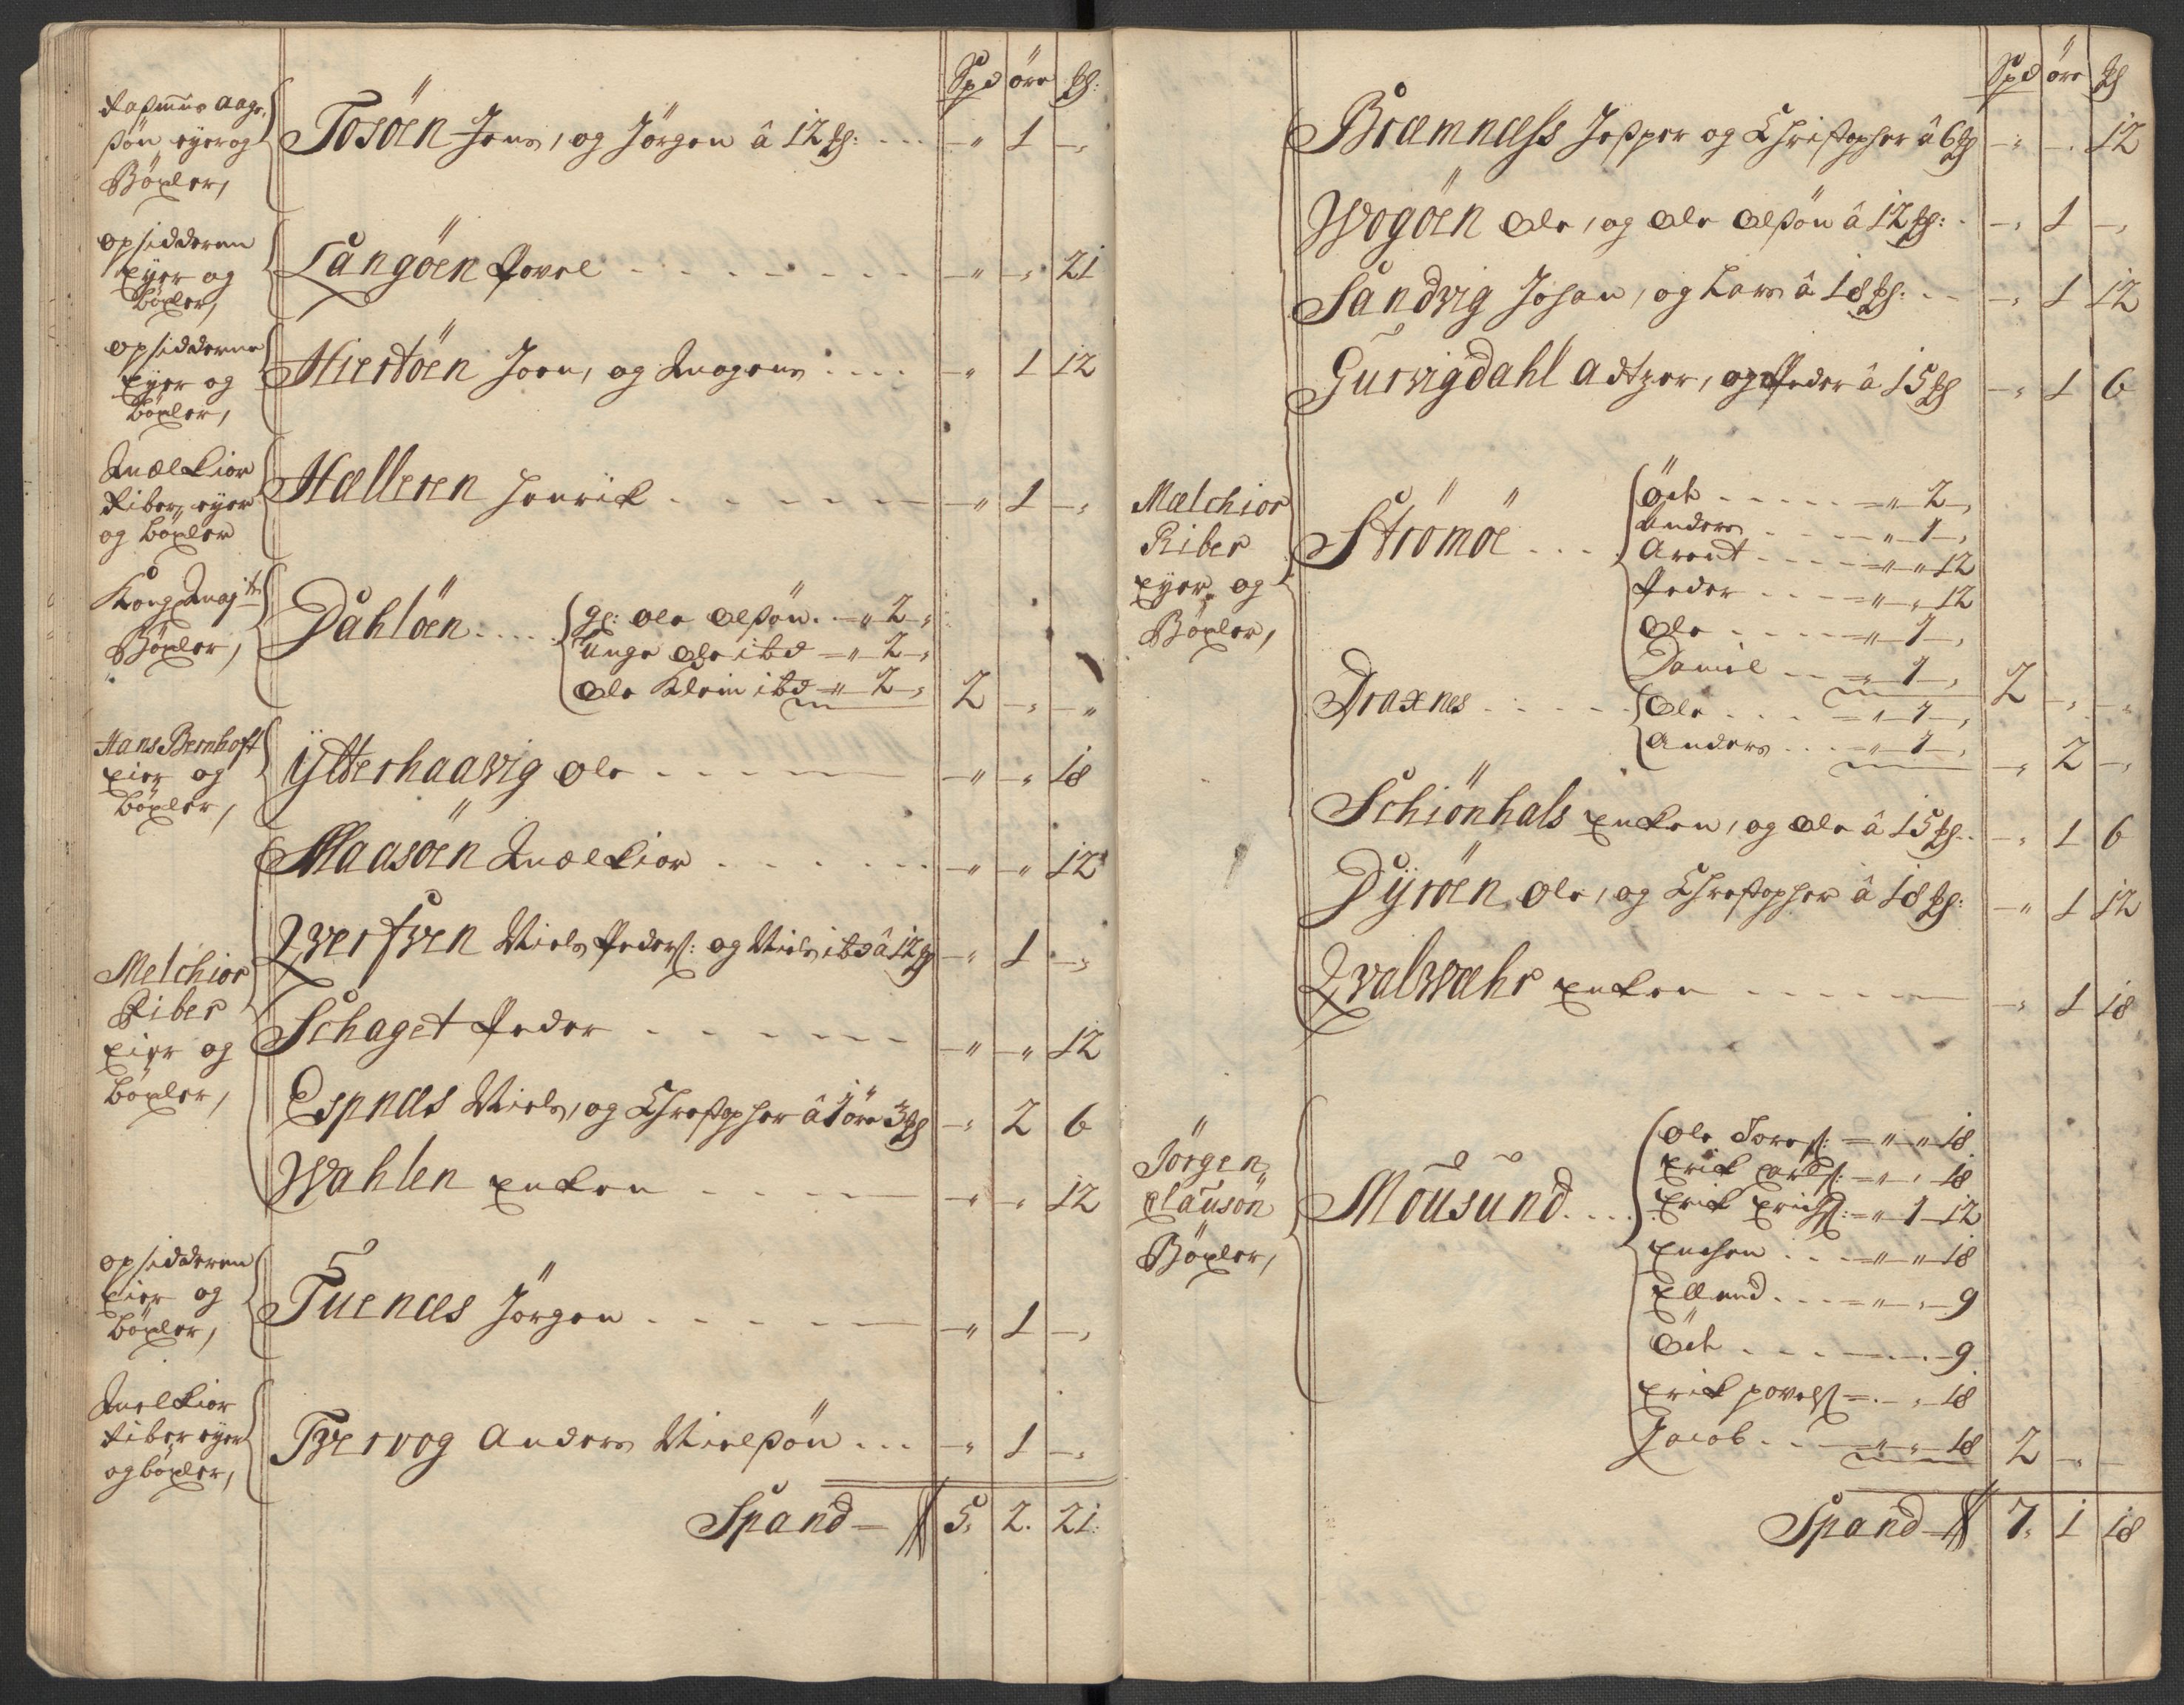 Spd öre ßl:
Raßmus Aage,
ßön eyer og
Böxler,
Tosöen Jens, og Jörgen â 12 ßl: . . . — " 1 —,
opsidderen
Eyer og
böxler,
Långöen Povel - - - - - - - — " —, 21
opsidderne
Eyer og
böxler,
Hiertöen Joen, og Mogens . . . . — " 1 12
Mælkior
Riber, eyer
og böxler
Hælleren Henrik - - - - - — " 1 —,
Kong Maj:tt
Böxler,
Dahlöen . . . .
gl: Ole Olßön . . — " 2 —,
unge Ole ibd — " 2 —,
Ole Klein ibd — " 2 —, 2 —, — "
Hans Bernhoft
Eier og
böxler,
ÿtterhaawig Ole - - - - - — " —, 18
Maasöen Mælkior - - - - - — " — " 12
Melchior
Riber
Eier og
böxler,
Qverfven Niels Peders: og Niels ibd â 12 ßl — " 1 —,
Schaget Peder - - - - - - — " — " 12
Espnæs Niels, og Christopher â 1 öre 3 ßl —, 2 6
Wahlen Enken - - - - — " —, 12
opsidderen
Eier og
böxler,
Tuenæs Jörgen - - - - - — " 1 —,
Mælkior
Riber eyer
og böxler,
Tvervog Anders Nielßön . . . — " 1 —,
Spand — 5, 2. 21:
Spd öre ßl
Bræmnæss Jesper og Christopher â 6 ßl — " — . 12
Wogöen Ole, og Ole Olßön â 12 ßl: . —, 1 —,
Sandvig Johan, og Lars â 18 ßl: . - —, 1 12
Gurvigdahl Adtzer, og Peder â 15 ßl —, 1 6
Mælchior
Riber
eyer og
Böxler,
Strömöe . . .
Och - - - - - — " 2 —,
Anders - - - - — " 1 —,
Arent - - - - — " " 12
Peder - - - — " , 12
Ole - - - - - — " 1 —,
Daniel - - — " 1 —, 2 —, —,
Draxnes - - - -
Ole - - - - — " 1 —,
Anders . . . — " 1 —, —, 2 —,
Schiönhals Enken, og Ole â 15 ßl. . — , 1 6
Dyröen Ole, og Christopher â 18 ßl: — " 1 12
Qvalwæhr Enken - - - - - - —, 1 18
Jörgen
Clausön
Böxler,
Mousund . . . .
Ole Tores: — " " 18
Erik Carls: — " , 18
Erik Erichs: — " 1 12
Enchen . . . — " " 18
Ellend . . . — " , — 9
Och . . . . — . . — 9
Erik povels — . - , 18
Jacob . . . — " , 18 2 —, —
Spand — 7, 1 18